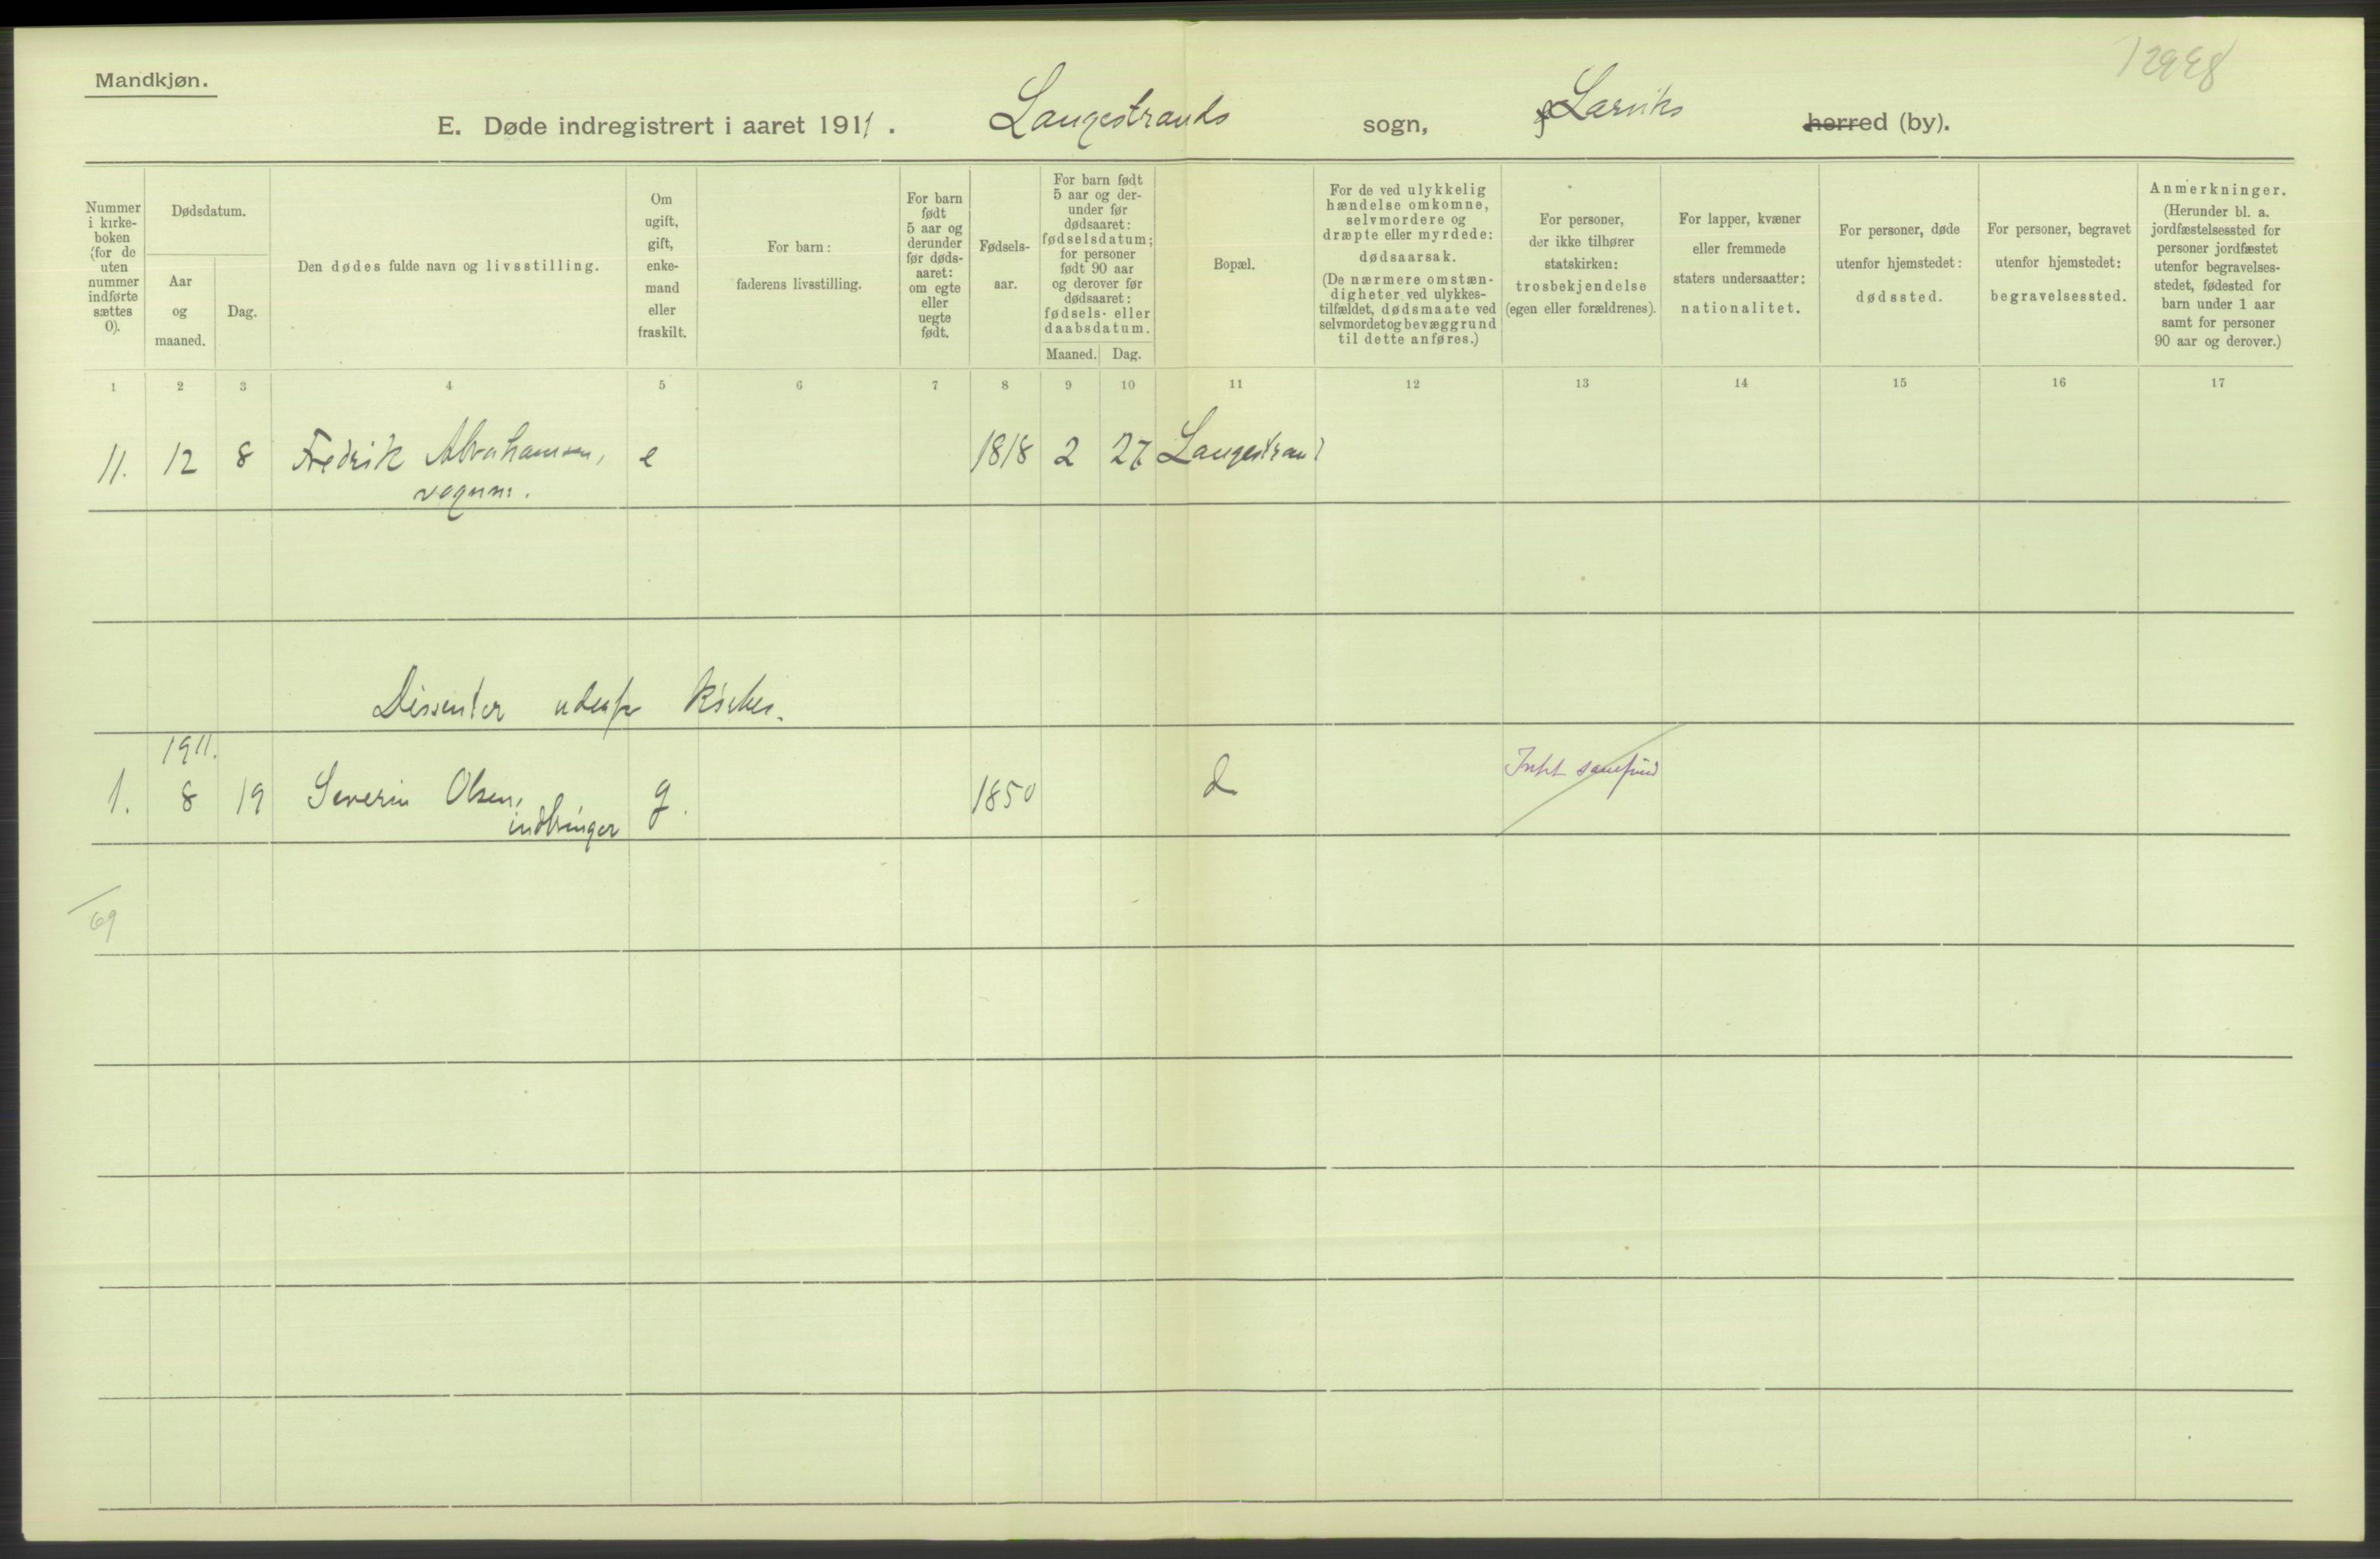 Mandkjøn.
12998
E. Døde indregistrert i aaret 1911. Langestrands sogn, Larviks herred (by).
Nummer i kirke-boken (for de uten nummer indførte sættes 0).
Dødsdatum.
Aar og maaned.
Dag.
Den dødes fulde navn og livsstilling.
Om ugift, gift, enke-mand eller fraskilt.
For barn: faderens livsstilling.
For barn født 5 aar og derunder før døds-aaret: om egte eller uegte født.
Fødsels-aar.
For barn født 5 aar og der-under før dødsaaret: fødselsdatum; for personer født 90 aar og derover før dødsaaret: fødsels- eller daabsdatum.
Maaned. Dag.
Bopæl.
For de ved ulykkelig hændelse omkomne, selvmordere og dræpte eller myrdede: dødsaarsak.
(De nærmere omstæn-digheter ved ulykkes-tilfældet, dødsmaate ved selvmordet og bevæggrund til dette anføres.)
For personer, der ikke tilhører statskirken: trosbekjendelse (egen eller forældrenes).
For lapper, kvæner eller fremmede staters undersaatter: nationalitet.
For personer, døde utenfor hjemstedet: dødssted.
For personer, begravet utenfor hjemstedet: begravelsessted.
Anmerkninger.
(Herunder bl. a. jordfæstelsessted for personer jordfæstet utenfor begravelses-stedet, fødested for barn under 1 aar samt for personer 90 aar og derover.)
1 2 3 4 5 6 7 8 9 10 11 12 13 14 15 16 17
11. 12 8 Fredrik Abrahamsen, e 1818 2 27 Langestrand
vognm.
Dissenter
1911.
1. 8 19 Severin Olsen, g. 1850 d
indbringer
69